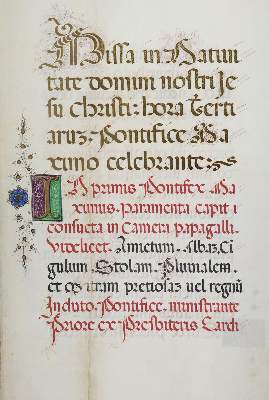 Missa in Natiui
tate domini nostri Je
su Christi: hora Terti
arum Pontifice Ma
ximo celebrante:
In primis Pontifex Ma
ximus Paramenta capit i
consueta in Camera papagalli.
Videlicet. Amictum. Albam. Ci
gulum Stolam. Pluuialem.
et mitram pretiosam uel regnum
Induto Pontifice, ministrante
Priore ex Presbiteris Cardi